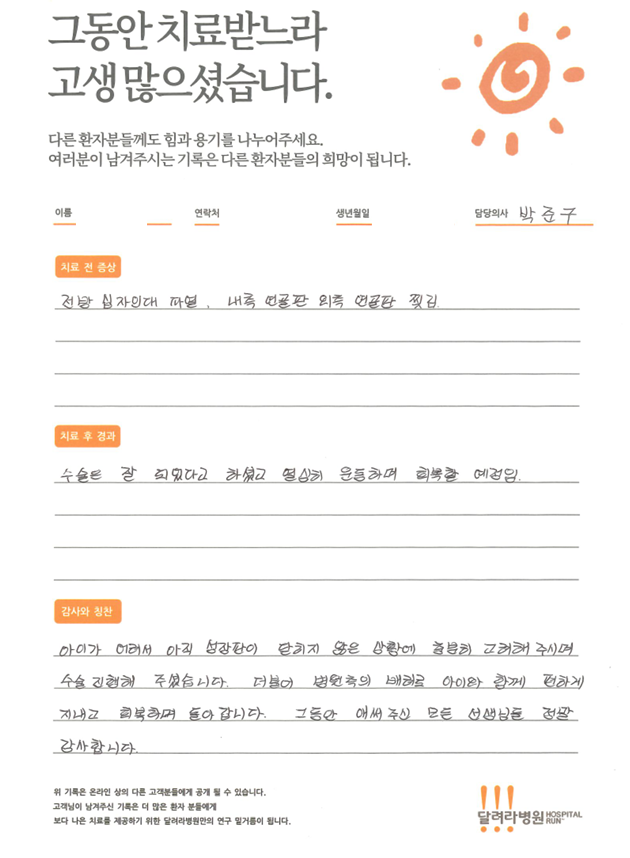 그동안 치료받느라
고생 많으셨습니다.
다른 환자분들께도 힘과 용기를 나누어주세요.
여러분이 남겨주시는 기록은 다른 환자분들의 희망이 됩니다.
이름 연락처 생년월일 담당의사 박준구
치료 전 증상
전방 십자인대 파열, 내측 연골판 외측 연골판 찢김.
치료 후 경과
수술은 잘 되었다고 하셨고 열심히 운동하며 회복할 예정임.
감사와 칭찬
아이가 어려서 아직 성장판이 닫히지 않은 상황에 충분히 고려해 주시며
수술 진행해 주셨습니다. 더불어 병원측의 배려로 아이와 함께 편하게
지내고 회복하며 돌아갑니다. 그동안 애써 주신 모든 선생님들 정말
감사합니다.
위 기록은 온라인 상의 다른 고객분들에게 공개 될 수 있습니다.
고객님이 남겨주신 기록은 더 많은 환자 분들에게
보다 나은 치료를 제공하기 위한 달려라병원만의 연구 밑거름이 됩니다.
달려라병원 HOSPITAL RUN